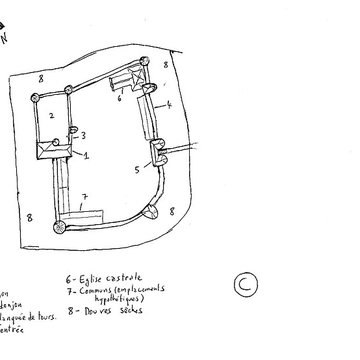 N
8
8
6
4
2
3
1
5
7
8
8
6- Eglise castrale
7- Communs (emplacements
hypothétiques)
8- Douves sèches
donjon
tours.
entrée
C